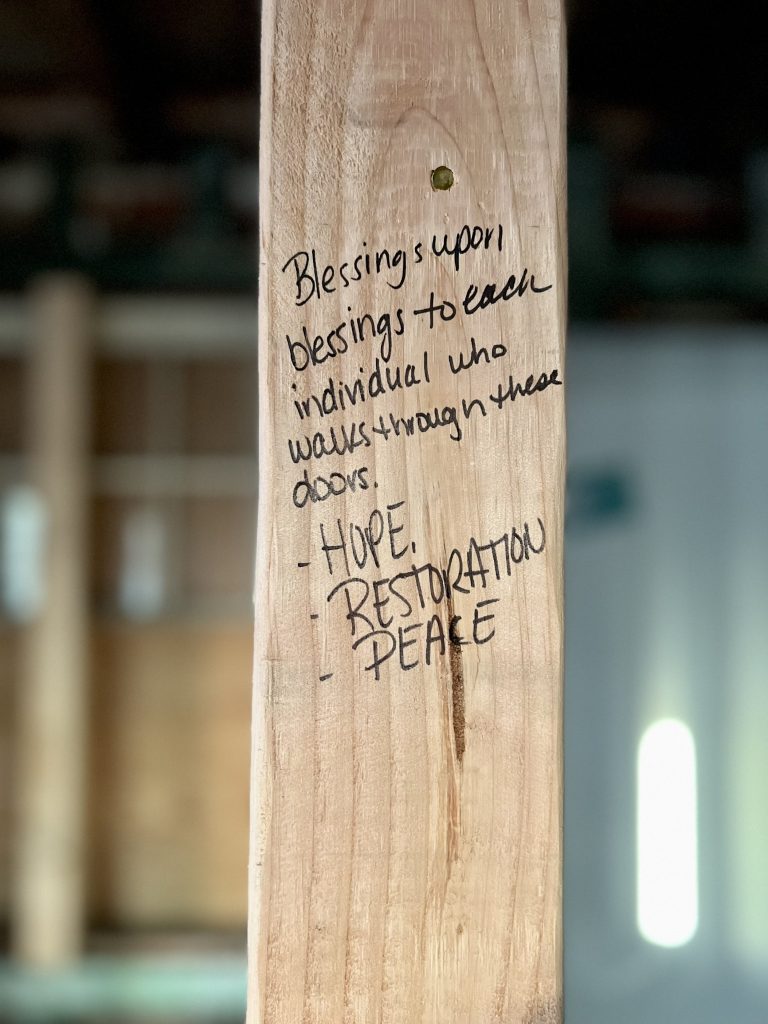 Blessings upon
blessings to each
individual who
walks through these
doors.
- HOPE.
- RESTORATION
- PEACE